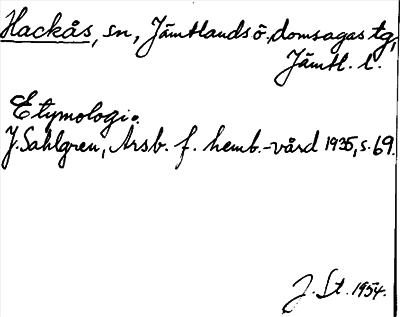 Hackås, sn, Jämtlands ö. domsagas tg,
Jämtl. l.
Etymologi.
J. Sahlgren, Årsb. f. hemb.-vård 1935, s. 69.
J. St. 1954.